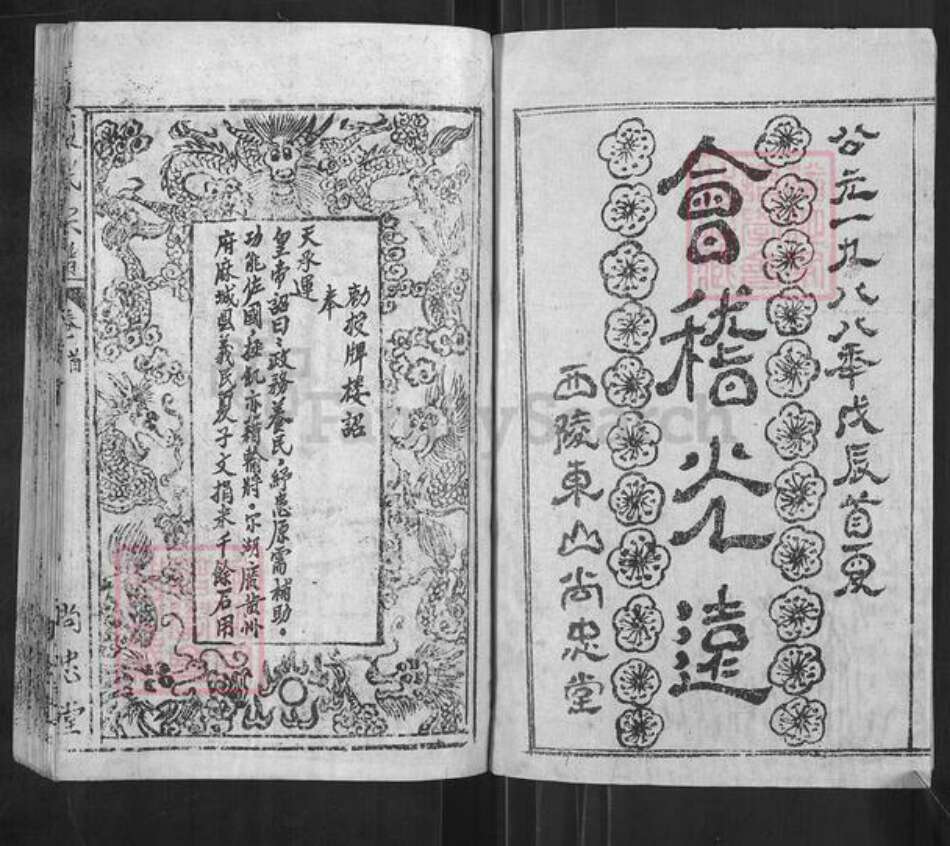 公元一九八八年戊辰首夏
會稽光遠
西陵東山尚忠堂
勅授牌楼詔
奉
天承運
皇帝詔曰、政務养民、紓患原需補助。
功能佐國、拯飢亦藉輸將。尔湖廣黄州
府麻城县義民夏子文捐米千餘石用
卷首
尚忠堂
FamilySearch